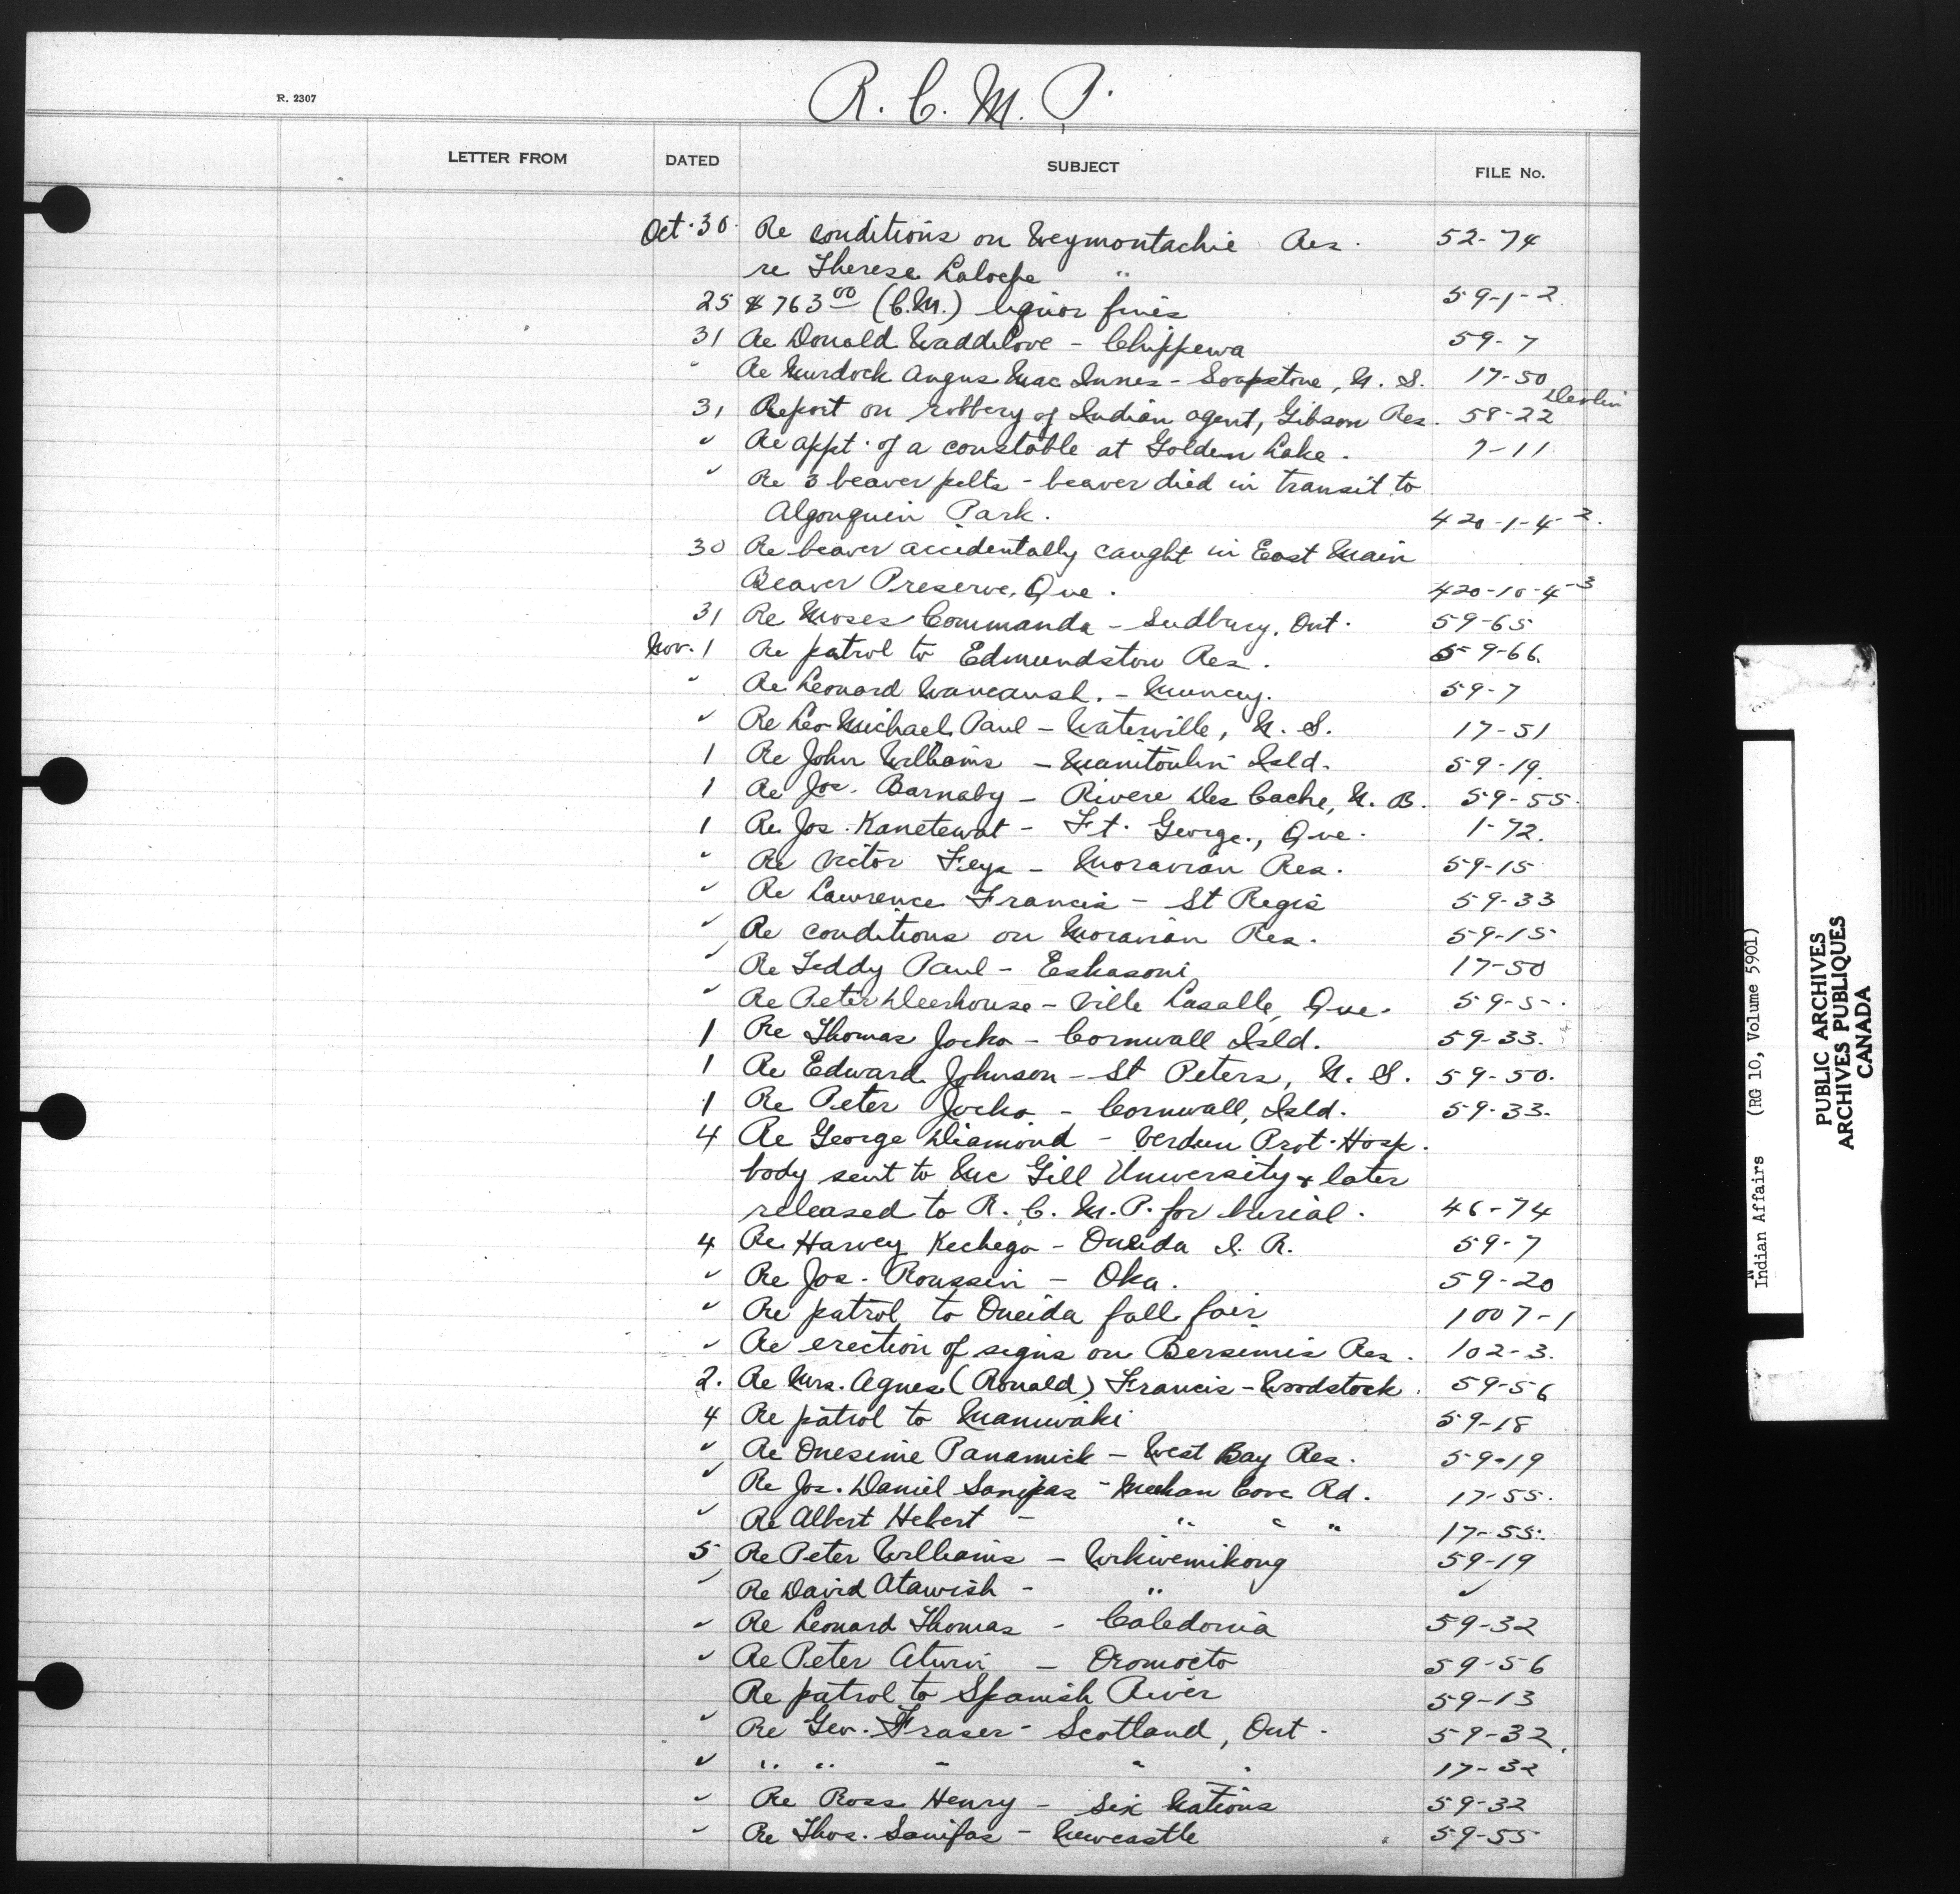 R. C. M. P.
R. 2307
LETTER FROM DATED SUBJECT FILE No.
Oct. 30. Re conditions on Weymontachie Res. 52-74
re Therese "
25 $763.00 (C.M.) liquor fines 59-1-2
31 Re Donald Waddilove - Chippewa 59-7
" Re Murdock Angus Mac Innes - Soapstone, N. S. 17-50
Devlin
31 Report on robbery of Indian agent, Gibson Res. 58-22
" Re appt. of a constable at Golden Lake. 7-11
" Re 3 beaver pelts - beaver died in transit to
Algonquin Park. 420-1-4-2.
30 Re beaver accidentally caught in East Main
Beaver Preserve, Que. 420-10-4-3
31 Re Moses Commanda - Sudbury, Ont. 59-65
Nov. 1 Re patrol to Edmundston Res. 59-66.
" Re Leonard - Muncey. 59-7
" Re Leo Michael Paul - Waterville, N. S. 17-51
1 Re John Williams - Manitoulin Isld. 59-19.
1 Re Jos. Barnaby - Rivere Des Cache, N. B. 59-55.
1 Re Jos. Kanetewat - Ft. George., Que. 1-72.
" Re Victor Feys - Moravian Res. 59-15
" Re Lawrence Francis - St Regis 59-33
" Re conditions on Moravian Res. 59-15
" Re Teddy Paul - Eskasoni, 17-50
" Re Peter Deerhouse - Ville Lasalle, Que. 59-5-.
1 Re Thomas Jocko - Cornwall Isld. 59-33.
1 Re Edward Johnson - St Peters, N. S. 59-50.
1 Re Peter Jocko - Cornwall, Isld. 59-33.
4 Re George Diamond - Verdun Prot. Hosp.
body sent to Mc Gill University & later
released to R. C. M. P. for burial. 46-74
4 Re Harvey Kechego - Oneida I. R. 59-7
" Re Jos. Roussin - Oka. 59-20
" Re patrol to Oneida fall fair 1007-1
" Re erection of signs on Bersimis Res. 102-3.
2. Re Mrs. Agnes (Ronald) Francis - Woodstock. 59-56
4 Re patrol to Maniwaki 59-18
" Re Onesime Panamick - West Bay Res. 59-19
" Re Jos. Daniel Sanipas - Meehan Cove Rd. 17-55.
" Re Albert Hebert - " " " 17-55.
5 Re Peter Williams - Wikwemikong 59-19
" Re David Atawish - " "
" Re Leonard Thomas - Caledonia 59-32
" Re Peter Atwin - Oromocto 59-56
Re patrol to Spanish River 59-13
" Re Geo. Fraser - Scotland, Ont. 59-32.
" " " " " " 17-32
" Re Ross Henry - Six Nations 59-32
" Re Thos. Sanifas - Newcastle 59-55
Indian Affairs (RG 10, Volume 5901)
PUBLIC ARCHIVES
ARCHIVES PUBLIQUES
CANADA